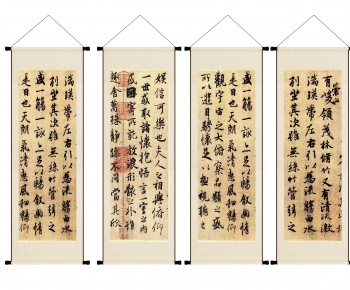 有崇山峻領茂林脩竹又有清流激
湍暎帶左右引以為流觴曲水
列坐其次雖無絲竹管弦之
盛一觴一詠亦足以暢敘幽情
是日也天朗氣清惠風和暢仰
觀宇宙之大俯察品類之盛
所以遊目騁懷足以極視聽之
娛信可樂也夫人之相與俯仰
一世或取諸懷抱悟言一室之內
或因寄所託放浪形骸之外雖
趣舍萬殊靜躁不同當其欣
湍暎帶左右引以為流觴曲水
列坐其次雖無絲竹管弦之
盛一觴一詠亦足以暢敘幽情
是日也天朗氣清惠風和暢仰